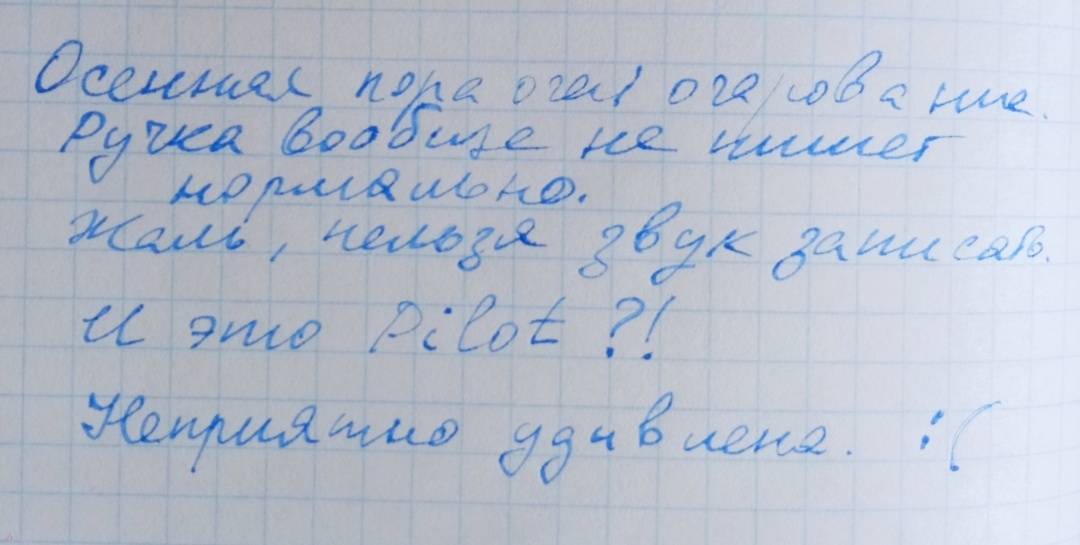 Осенняя пора очей очарованье.
Ручка вообще не пишет
нормально.
Жаль, нельзя звук записать.
И это Pilot ?!
Неприятно удивлена. :(